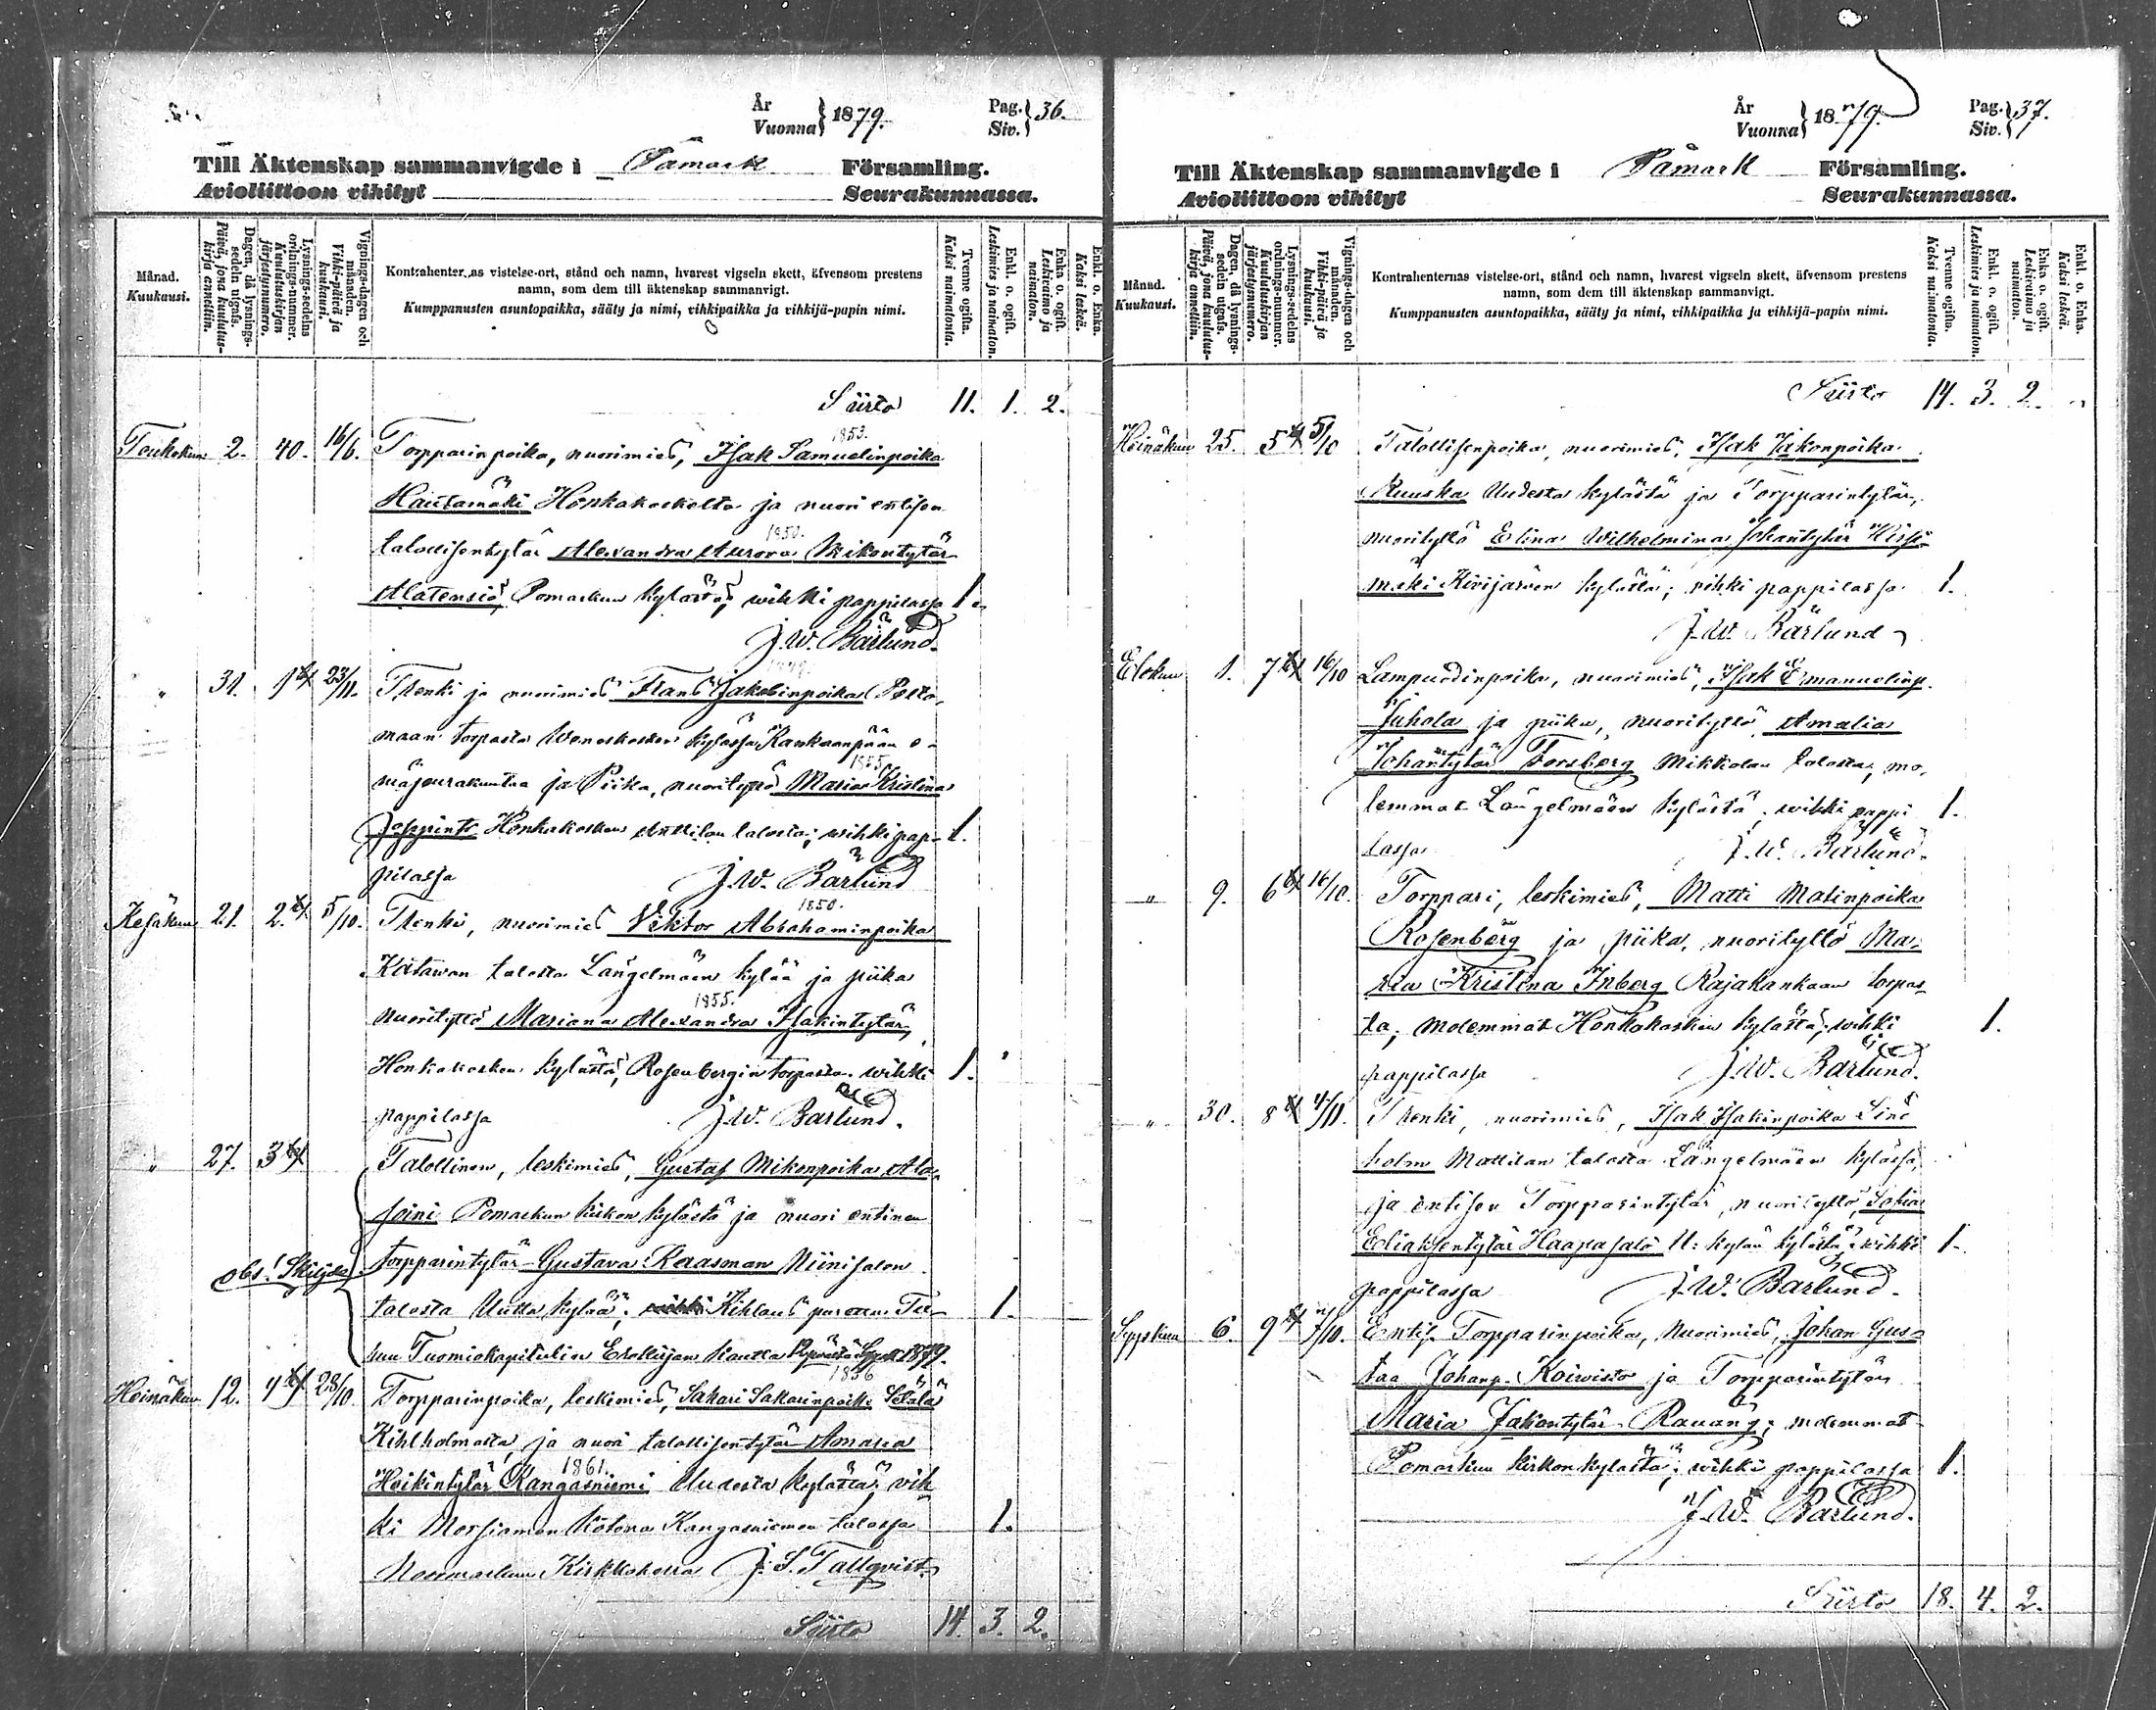 År
Vuonna } 1879.
Pag.
Siv. } 36.
Till Äktenskap sammanvigde i Påmark Församling.
Avioliittoon vihityt Seurakunnassa.
Månad.
Kuukausi.
Dagen, då lysnings-
sedeln utgafs.
Päivä, jona kuulutus-
kirja annettiin.
Lysnings-sedelns
ordnings-nummer.
Kuulutuskirjan
järjestysnumero.
Vignings-dagen och
månaden.
Vihki-päivä ja
kuukausi.
Kontrahenternas vistelse-ort, stånd och namn, hvarest vigseln skett, äfvensom prestens
namn, som dem till äktenskap sammanvigt.
Kumppanusten asuntopaikka, sääty ja nimi, vihkipaikka ja vihkijä-papin nimi.
Tvenne ogifta.
Kaksi naimatonta.
Enkl. o. ogift.
Leskimies ja naimaton.
Enka o. ogift.
Leskivaimo ja
naimaton.
Enkl. o. Enka.
Kaksi leskeä.
Siirto 11. 1. 2.
1853.
Toukokuu 2. 40. 16/6. Torpparinpoika, nuorimies, Isak Samuelinpoika
Hautamäki Honkakoskelta ja nuori entisen
1850.
talollisentytär Alexandra Aurora Mikontytär
Alatensiö, Pomarkun kylästä, wihki pappilassa 1.
J. W. Bärlund.
" 31. 1 23/11. Renki ja nuorimies Frans Jakobinpoika Pelto-
maan torpasta Weneskosken kylässä Kankaanpään
1855.
ja Piika, nuorityttö Maria Kristina
Honkakosken Anttilan talosta; wihki pap- 1.
pilassa J. W. Bärlund
1850.
Kesäkuu 21. 2. 5/10. Renki, nuorimies Viktor Abrahaminpoika
Katawan talosta Längelmäen kylää ja piika
1855.
nuorityttö Mariana Alexandra Isakintytär,
Honkakosken kylästä, Rosenbergin torpasta. wihki 1.
pappilassa J. W. Bärlund.
" 27. 3 Talollinen, leskimies, Gustaf Mikonpoika Ala-
soini Pomarkun kirkon kylästä ja nuori entinen
obs! Skiljda torpparintytär Gustava Kaasman Niinisalon
talosta Uutta kylää; Kihlaus purettu Tu- 1.
run Tuomiokapitulin Erokirjan kautta 1879.
1856
Heinäkuu 12. 4 28/10 Torpparinpoika, leskimies, Sakari Sakarinpoika Setälä
Kihlholmasta, ja nuori talollisentytär Amanda
1861.
Heikintytär Kangasniemi Uudesta kylästä, vih-
ki Morsiamen kotona Kangasniemen talossa 1.
Noormarkun Kirkkoherra J. S. Tallqvist.
Siirto 14. 3. 2.
År
Vuonna } 1879.
Pag.
Siv. } 37.
Till Äktenskap sammanvigde i Påmark Församling.
Avioliittoon vihityt Seurakunnassa.
Månad.
Kuukausi.
Dagen, då lysnings-
sedeln utgafs.
Päivä, jona kuulutus-
kirja annettiin.
Lysnings-sedelns
ordnings-nummer.
Kuulutuskirjan
järjestysnumero.
Vignings-dagen och
månaden.
Vihki-päivä ja
kuukausi.
Kontrahenternas vistelse-ort, stånd och namn, hvarest vigseln skett, äfvensom prestens
namn, som dem till äktenskap sammanvigt.
Kumppanusten asuntopaikka, sääty ja nimi, vihkipaikka ja vihkijä-papin nimi.
Tvenne ogifta.
Kaksi naimatonta.
Enkl. o. ogift.
Leskimies ja naimaton.
Enka o. ogift.
Leskivaimo ja
naimaton.
Enkl. o. Enka.
Kaksi leskeä.
Siirto 14. 3. 2. "
Heinäkuu 25. 5 5/10 Talollisenpoika, nuorimies, Isak Jakonpoika
Ruuska Uudesta kylästä ja Torpparintytär,
nuorityttö Elina Wilhelmina Johantytär Hirsi-
mäki Kivijärven kylästä; vihki pappilassa 1.
J. W. Bärlund
Elokuu 1. 7 16/10 Lampuodinpoika, nuorimies, Isak Ermanuelinp.
Juhola ja piika, nuorityttö Amalia
Johantytär Forsberg Mikkolan talosta, mo-
lemmat Längelmäen kylästä; wihki pappi 1.
lassa J. W. Bärlund.
" 9. 6 16/10. Torppari, leskimies, Matti Matinpoika
Rosenberg ja piika, nuorityttö Ma-
ria Kristina Inberg Rajakankaan torpas-
ta; molemmat Honkakosken kylästä; wihki 1.
pappilassa J. W. Bärlund.
" 30. 8 4/11. Renki, nuorimies, Isak Isakinpoika Lind
holm Mattilan talosta Längelmäen kylässä,
ja entisen Torpparintytär, nuorityttö, Sofia
Eliaksentytär Haapasalo U: kylän kylästä; wihki 1.
pappilassa J. W. Bärlund.
Syyskuu 6. 9 /10. Entis. Torpparinpoika, Nuorimies, Johan Gus-
taa Johanp. Koiwisto ja Torpparintytär
Maria Jakontytär Rauang; molemmat
Pomarkun kirkon kylästä; wihki pappilassa 1.
J. W. Bärlund.
Siirto 18. 4. 2.